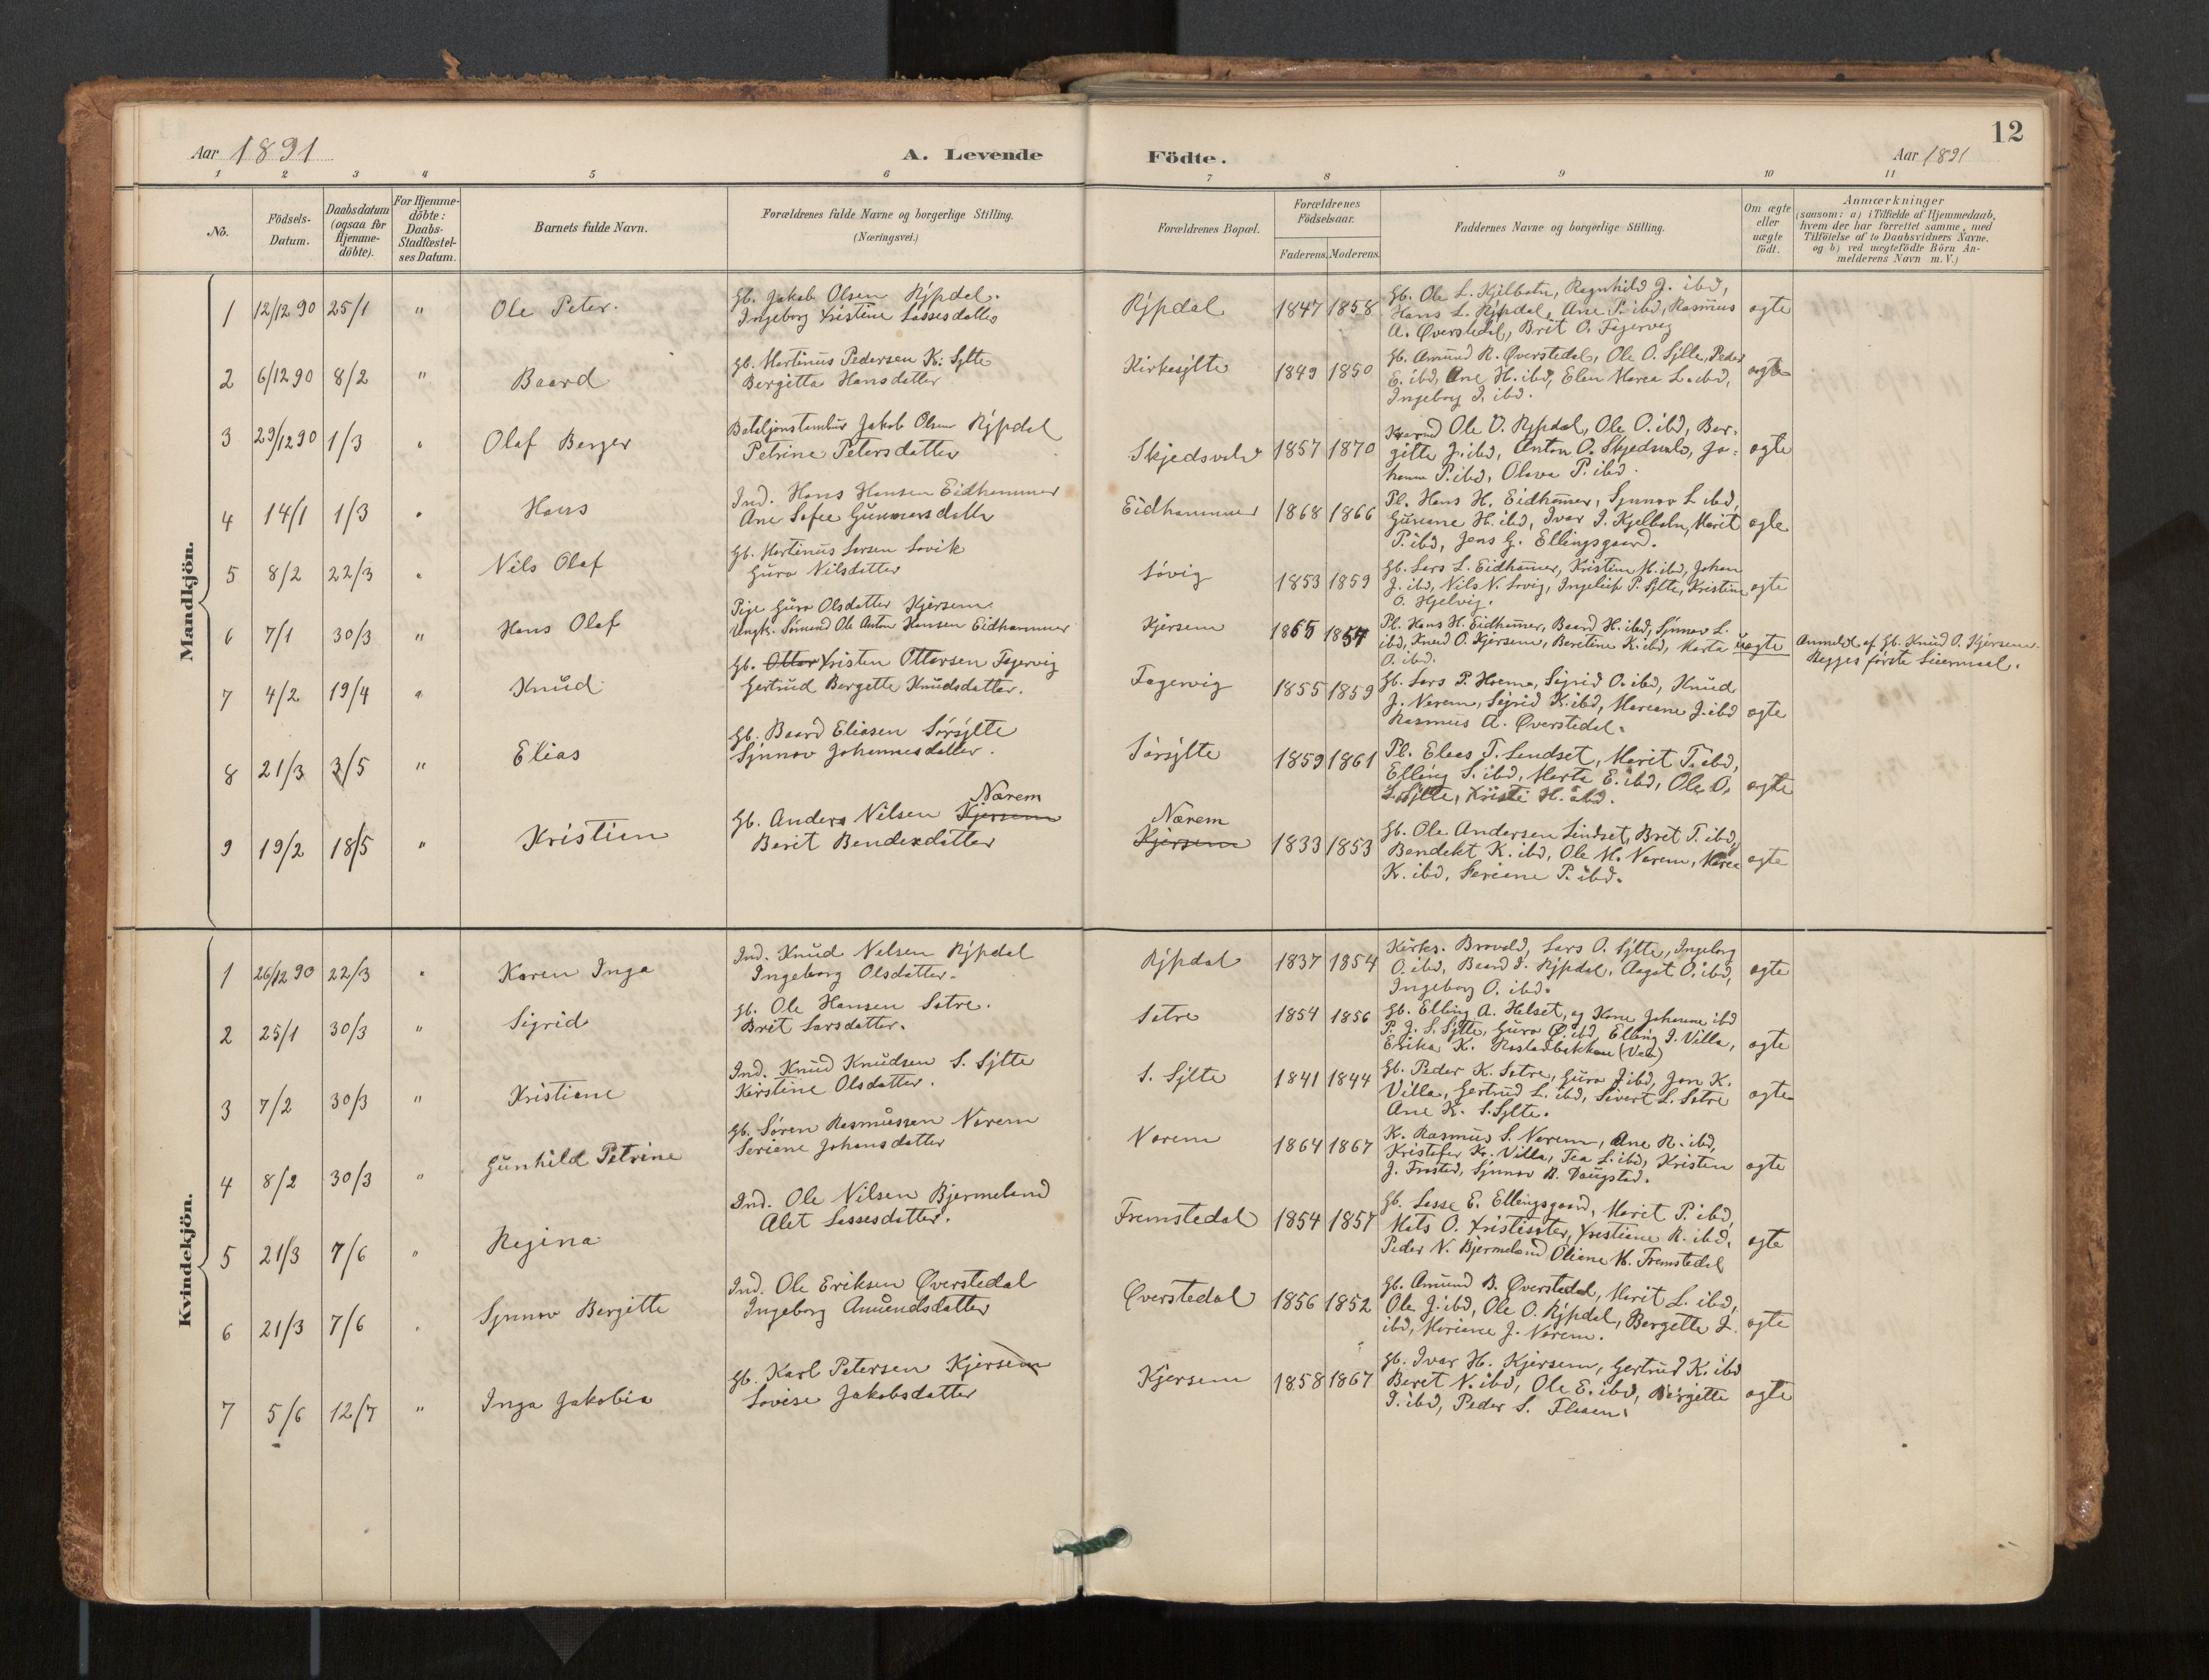 12
Aar 1891
A. Levende Födte.
Aar 1891
1 2 3 4 5 6 7 8 9 10 11
No.
Födsels-Datum.
Daabsdatum (ogsaa for Hjemme-döbte).
For Hjemme-döbte: Daabs-Stadfæstel-ses Datum.
Barnets fulde Navn.
Forældrenes fulde Navne og borgerlige Stilling.
(Næringsvei.)
Forældrenes Bopæl.
Forældrenes Födselsaar.
Faderens. Moderens.
Faddernes Navne og borgerlige Stilling.
Om ægte eller uægte födt.
Anmærkninger
(saasom: a) i Tilfælde af Hjemmedaab,
hvem der har forrettet samme, med
Tilföielse af to Daabsvidners Navne.
og b) ved uægtefödte Börn An-
melderens Navn m. V.)
Mandkjön.
1 12/12 90 25/1 " Ole Peter.
Gb. Jakob Olsen Rypdal.
Ingeborg Kristine Lassesdatter
Rypdal 1847 1858
Gb. Ole L. Kjelbotn, Ragnhild J. ibd,
Hans L. Rypdal, Ane P. ibd, Rasmus
A. Øverstedal, Brit O. Fagervig
ægte
2 6/12 90 8/2 " Baard
Gb. Martinus Pedersen K. Sylte
Bergitta Hansdatter
Kirkesylte 1849 1850
Gb. Amund R. Øverstedal, Ole O. Sylte, Peder
E. ibd, Ane H. ibd, Elen Marea L. ibd,
Ingeborg I. ibd.
ægte
3 29/12 90 1/3 " Olaf Berger
Bataljonstambur Jakob Olsen Rypdal
Petrine Petersdatter
Skjedsvold 1857 1870
Ole O. Rypdal, Ole O. ibd, Ber-
gitte J. ibd, Anton O. Skjedsvold, Jo-
hanna P. ibd, Olava P. ibd.
ægte
4 14/1 1/3 " Hans
Ind. Hans Hansen Eidhammer
Ane Sofie Gunnarsdatter
Eidhammer 1868 1866
Pl. Hans H. Eidhamer, Synnov L. ibd,
Guriane H. ibd, Ivar I. Kjelbotn, Marit
P. ibd, Jens G. Ellingsgaard.
ægte
5 8/2 22/3 " Nils Olaf
Gb. Martinus Larsen Lovik
Guro Nilsdatter
Lovig 1853 1859
Gb. Lars L. Eidhamer, Kristine M. ibd, Johan
J. ibd, Nils N. Lovig, Ingeleif P. Sylte, Kristine
O. Hjelvig.
ægte
6 7/1 30/3 " Hans Olaf
Pige Guro Olsdatter Kjersem
Ungk. Sømand Ole Anton Hansen Eidhammer
Kjersem 1865 1857
Pl. Hans H. Eidhamer, Baard H. ibd, Synnov L.
ibd, Knud O. Kjersem, Beretine K. ibd, Marta
O. ibd.
uægte
Anmeldt af Gb. Knud O. Kjersem.
Begges første Leiermaal.
7 4/2 19/4 " Knud
Gb. Ottar Kristen Ottarsen Fagervig
Gertrud Bergette Knudsdatter.
Fagervig 1855 1859
Gb. Lars P. Hoem, Sigrid O. ibd, Knud
J. Nærem, Sigrid K. ibd, Mareane J. ibd
Rasmus A. Øverstedal.
ægte
8 21/3 3/5 " Elias
Gb. Baard Eliasen Sørsylte
Synnov Johannesdatter.
Sørsylte 1859 1861
Pl. Elias T. Lindset, Marit T. ibd,
Elling S. ibd, Marta E. ibd, Ole O.
S. Sylte, Kristi H. ibd.
ægte
9 19/2 18/5 " Kristian
Nærem
Gb. Anders Nilsen Kjersem
Berit Bendexdatter
Nærem
Kjersem 1833 1853
Gb. Ole Andersen Lindset, Bret T. ibd,
Bendekt K. ibd, Ole M. Nærem, Marea
K. ibd, Seriane P. ibd.
ægte
Kvindekjön.
1 26/12 90 22/3 " Karen Inga
Ind. Knud Nelsen Rypdal
Ingeborg Olsdatter.
Rypdal 1837 1854
Kirkes. Brovold, Lars O. Sylte, Ingeborg
O. ibd, Baard I. Rypdal, Aagot O. ibd,
Ingeborg O. ibd.
ægte
2 25/1 30/3 " Sigrid
Gb. Ole Hansen Sætre.
Brit Larsdatter.
Sætre 1854 1856
Gb. Elling A. Helset, og Kone Johanne ibd
P. J. S. Sylte, Guro O. ibd, Elling I. Villa,
Erika K. Rastadbakken
ægte
3 7/2 30/3 " Kristiane
Ind. Knud Knudsen S. Sylte
Kirstine Olsdatter.
S. Sylte 1841 1844
Gb. Peder K. Sætre, Guro J. ibd, Jon K.
Villa, Gertrud L. ibd, Sivert L. Sætre
Ane K. S. Sylte.
ægte
4 8/2 30/3 " Gunhild Petrine
Gb. Søren Rasmussen Nærem
Seriane Johansdatter
Nærem 1864 1867
K. Rasmus S. Nærem, Ane R. ibd,
Kristofer K. Villa, Tea L. ibd, Kristen
J. Frostad, Synnov B. Daugstad.
ægte
5 21/3 7/6 " Regina
Ind. Ole Nilsen Bjermeland
Alet Lassesdatter.
Fremstedal 1854 1857
Gb. Lasse E. Ellingsgaard, Marit P. ibd,
Mats O. Kristisæter, Krestiane R. ibd,
Peder N. Bjermeland Oliane M. Fremstedal
ægte
6 21/3 7/6 " Synnov Bergitte
Ind. Ole Eriksen Øverstedal
Ingeborg Amundsdatter
Øverstedal 1856 1852
Gb. Amund B. Øverstedal, Marit L. ibd,
Ole J. ibd, Ole O. Rypdal, Bergette J.
ibd, Mariane J. Nærem.
ægte
7 5/6 12/7 " Inga Jakobia
Gb. Karl Petersen Kjersem
Lovise Jakobsdatter
Kjersem 1858 1867
Gb. Ivar H. Kjersem, Gertrud K. ibd
Beret N. ibd, Ole E. ibd, Bergitte
I. ibd, Peder S. Flaaen.
ægte